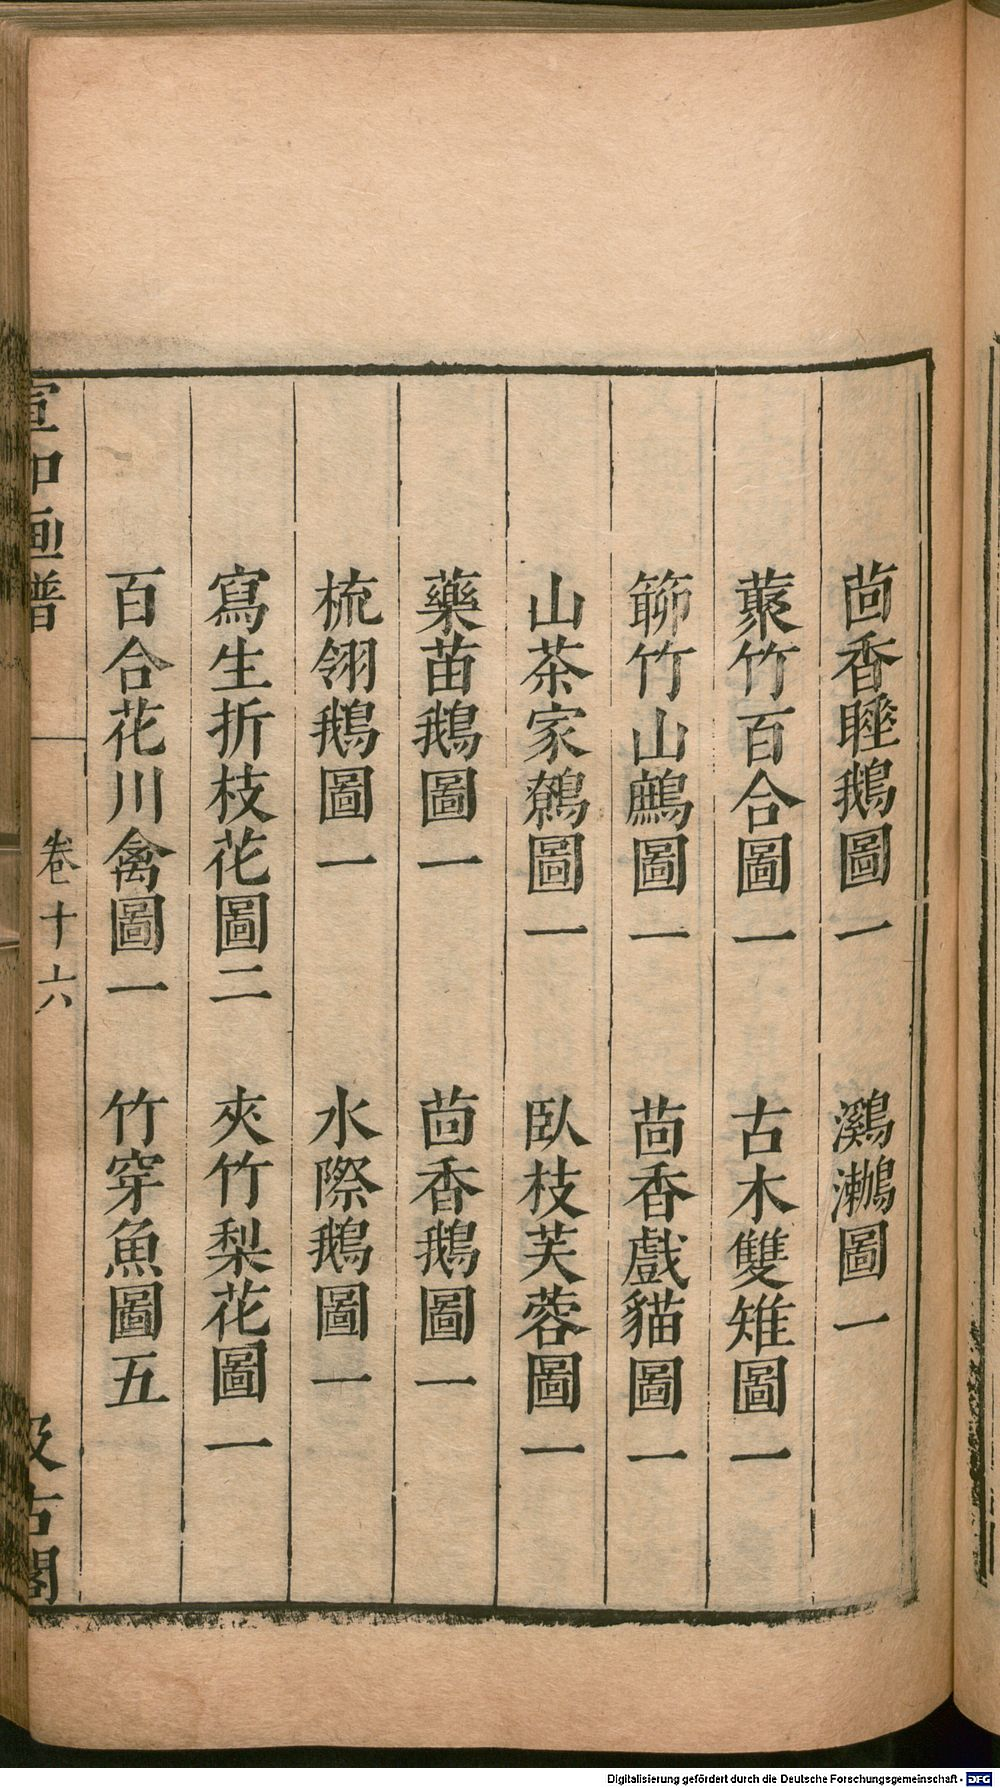 茴香睡鵝圖一　鸂鷘圖一
蓼竹百合圖一　古木雙雉圖一
笻竹山鷓圖一　茴香戲貓圖一
山茶家鷯圖一　臥枝芙蓉圖一
藥苗鵝圖一　茴香鵝圖一
梳翎鵝圖一　水際鵝圖一
寫生折枝花圖二　夾竹梨花圖一
百合花川禽圖一　竹穿魚圖五
宣和画譜　卷十六　汲古閣
Digitalisierung gefördert durch die Deutsche Forschungsgemeinschaft - DFG